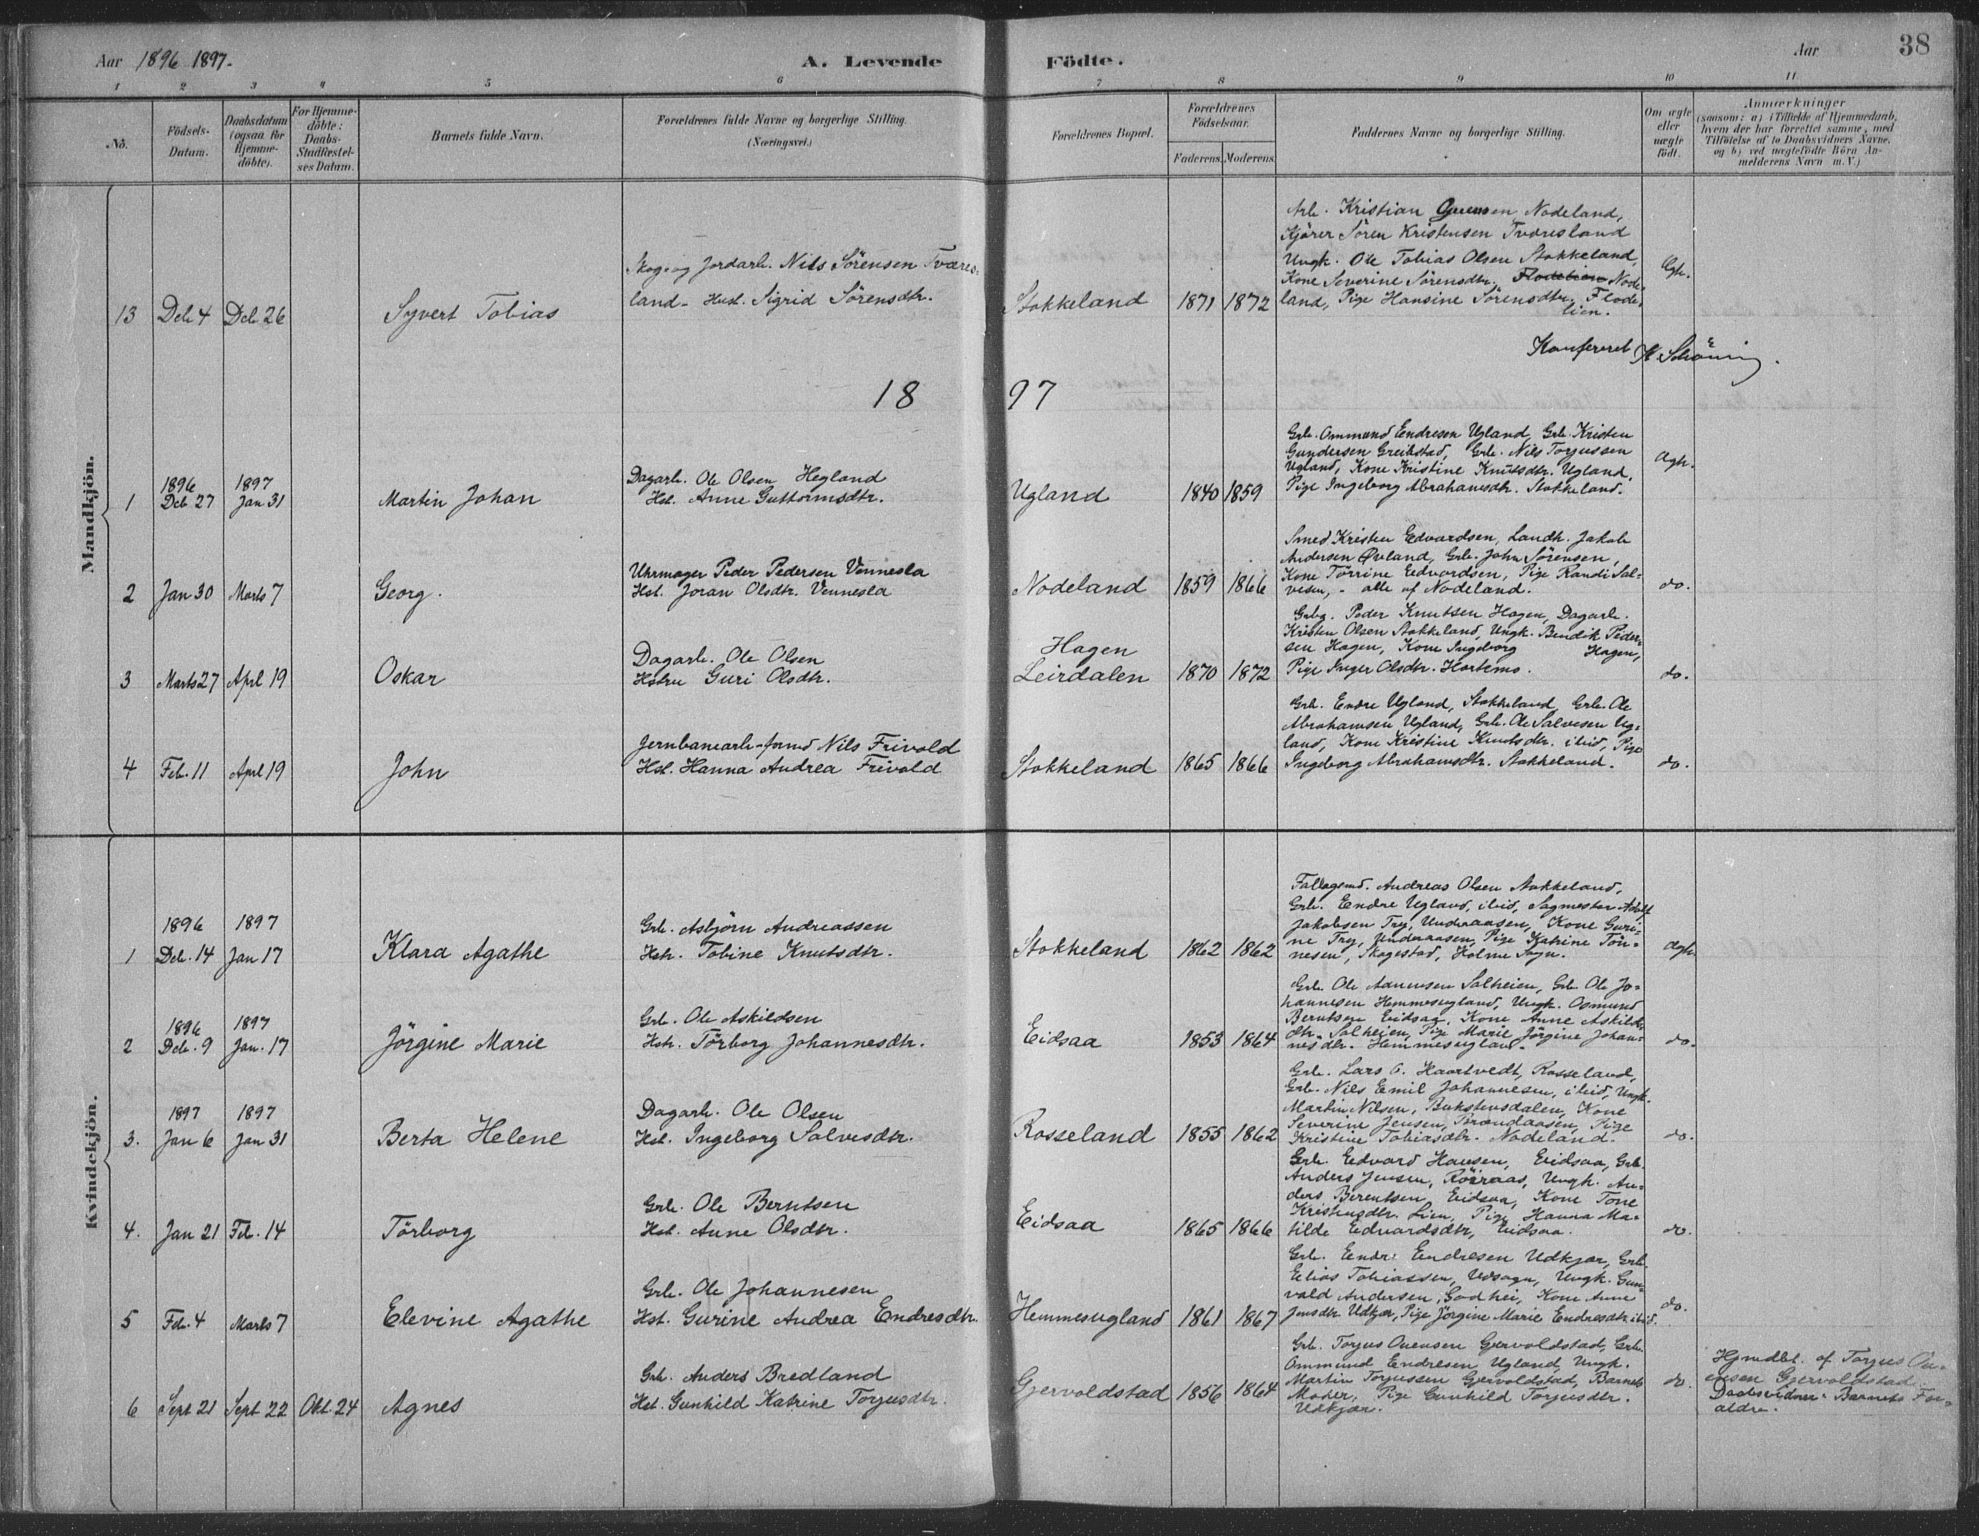 Aar 1896 1897.
A. Levende Födte.
Aar
38
1 2 3 4 5 6 7 8 9 10 11
No.
Födsels-Datum.
Daabsdatum (ogsaa for Hjemme-döbte).
For Hjemme-döbte: Daabs-Stadfæstel-ses Datum.
Barnets fulde Navn.
Forældrenes fulde Navne og borgerlige Stilling. (Næringsvei.)
Forældrenes Bopæl.
Forældrenes Födselsaar.
Faderens. Moderens.
Faddernes Navne og borgerlige Stilling.
Om ægte eller uægte födt.
Anmærkninger
(saasom: a) i Tilfælde af Hjemmedaab,
hvem der har forrettet samme, med
Tilföielse af to Daabsvidners Navne,
og b) ved uægtefödte Börn An-
melderens Navn m. V.)
Mandkjön.
13 Dcb 4 Dcb 26
Syvert Tobias
Skog og Jordarb. Nils Sörensen Tveres-
land - Hust. Sigrid Sörensdtr.
Stokkeland 1871 1872
Arb. Kristian Nodeland,
Kjörer Sören Kristensen Tværesland
Ungk. Ole Tobias Olsen Stokkeland,
Kone Severine Sörensdtr. Node-
land, Pige Hansine Sörensdtr. Flode-
lien.
Ægt.
Konfereret K Schöning.
1897
1 1896 Dcb 27 1897 Jan 31
Martin Johan
Dagarb. Ole Olsen Hegland
Hst. Anne Guttormsdtr.
Ugland 1840 1859
Grb. Ommund Endresen Ugland, Grb. Kristen
Gundersen Greibstad, Grb. Nils Torjussen
Ugland, Kone Kristine Knutsdtr. Ugland,
Pige Ingeborg Abrahamsdtr. Stokkeland.
Ægt.
2 Jan 30 Marts 7
Georg.
Uhrmager Peder Pedersen Vennesla
Hst. Joran Olsdtr. Vennesla
Nodeland 1859 1866
Smed Kristen Edvardsen, Landh. Jakob
Andersen Övland, Grb. John Sörensen,
Kone Törrine Eedvardsen, Pige Randi Sal-
vesen, - alle af Nodeland.
do.
3 Marts 27 Apri 19
Oskar
Dagarb. Ole Olsen
Hstru Guri Olsdtr.
Hagen
Leirdalen 1870 1872
Grbg. Peder Knutsen Hagen, Dagarb.
Kristen Olsen Stokkeland, Ungk. Bendik Peder-
sen Hagen, Kone Ingeborg Hagen,
Pige Inger Olsdtr. Hortemo.
do.
4 Feb. 11 April 19
John
Jernbanearb-fmd Nils Frivold
Hst. Hanna Andrea Frivold
Stokkeland 1865 1866
Grb. Endre Ugland, Stokkeland, Grb. Ole
Abrahamsen Ugland, Grb. Ole Salvesen Ug-
land, Kone Kristine Knutsdtr. ibid, Pige
Ingeborg Abrahamsdtr. Stokkeland.
do.
Kvindekjön.
1 1896 Dcb. 14 1897 Jan 17
Klara Agathe
Grb. Asbjörn Andreassen
Hstr. Tobine Knutsdtr.
Stokkeland 1862 1862
Andreas Olsen Stokkeland,
Grb. Endre Ugland, ibid, Sagmester Adolf
Jakobsen Try, Underaasen, Kone Guri-
ne Try, Underaasen, Pige Katrine Tön-
nesen, Skogestad, Holme Sogn.
Ægt.
2 1896 Dcb. 9 1897 Jan. 17
Jörgine Marie
Grb. Ole Askildsen
Hstr. Törborg Johannesdtr.
Eidsaa 1853 1864
Grb. Ole Aanensen Salheien, Grb. Ole Jo-
hannesen Hemmesugland, Ungk. Osmund
Berntsen Eidsaa, Kone Anne Askilds-
dtr. Salheien, Pige Marie Jörgine Johan-
nesdtr. Hemmesugland.
do.
3. 1897 Jan 6 1897 Jan 31
Berta Helene
Dagarb. Ole Olsen
Hst. Ingeborg Salvesdtr.
Rosseland 1855 1862
Grb. Lars O. Haartvedt, Rosseland,
Grb. Nils Emil Johannesen, ibid, Ungk.
Martin Nilsen, Bukstensdalen, Kone
Severine Jensen, Brændaasen, Pige
Kristine Tobiasdtr. Nodeland.
do.
4. Jan 21 Feb. 14
Törborg
Grb. Ole Berntsen
Hst. Anne Olsdtr.
Eidsaa 1865 1866
Grb. Edvard Hansen, Eidsaa, Grb.
Anders Jensen, Röiraas, Ungk. An-
ders Berentsen, Eidsaa, Kone Tone
Kristensdtr. Lien, Pige Hanna Ma-
tilde Edvardsdtr, Eidsaa.
do.
5 Feb. 4 Marts 7
Elevine Agathe
Grb. Ole Johannesen
Hst. Gurine Andrea Endresdtr.
Hemmesugland 1861 1867
Grb. Endre Endresen Udkjær, Grb.
Elias Tobiassen, Udsogn, Ungk. Gun-
vald Andersen, Godhei, Kone Anne
Jensdtr Udkjær, Pige Jörgine Marie Endresdtr ibid.
do.
6 Sept 21 Sept 22 Okt. 24
Agnes
Grb. Anders Bredland
Hst. Gunhild Katrine Torjusdtr.
Gjervoldstad 1856 1864
Grb. Torjus Ouensen Gjervoldstad, Grb.
Ommund Endresen, Ugland, Ungk.
Martin Torjussen Gjervoldstad, Barnets
Moder, Pige Gunhild Torjusdtr.
Udkjær.
do.
Hjmdbt. af Torjus Ou-
ensen Gjervoldstad.
Daabsvidner: Barnets For-
ældre.